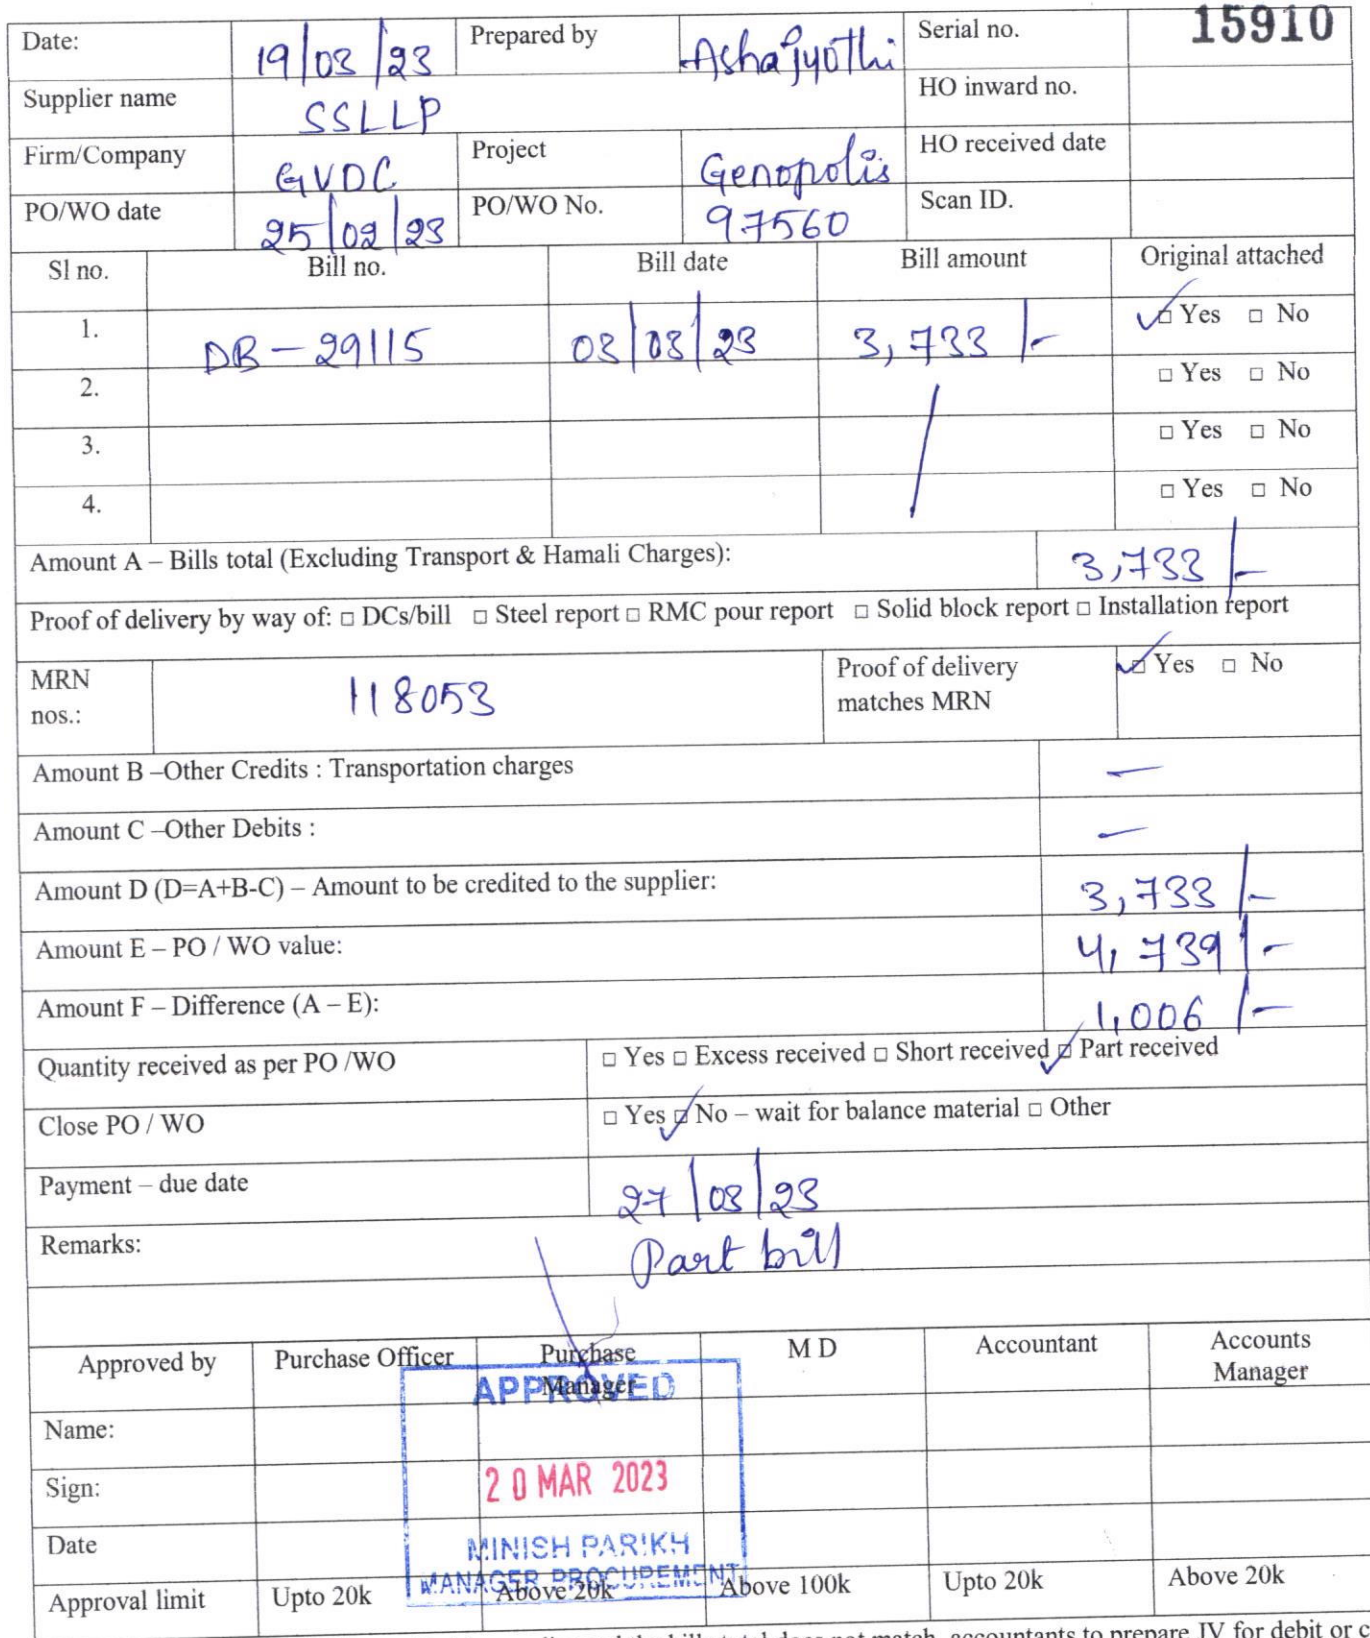 Date: 19/03/23 Prepared by Ashajyothi Serial no. 15910
Supplier name SSLLP HO inward no.
Firm/Company GVDC Project Genopolis HO received date
PO/WO date 25/02/23 PO/WO No. 97560 Scan ID.
Sl no. Bill no. Bill date Bill amount Original attached
1. DB-29115 03/03/23 3,733/- ☑ Yes □ No
2. □ Yes □ No
3. □ Yes □ No
4. □ Yes □ No
Amount A – Bills total (Excluding Transport & Hamali Charges): 3,733/-
Proof of delivery by way of: □ DCs/bill □ Steel report □ RMC pour report □ Solid block report □ Installation report
MRN nos.: 118053 Proof of delivery matches MRN ☑ Yes □ No
Amount B –Other Credits : Transportation charges –
Amount C –Other Debits : –
Amount D (D=A+B-C) – Amount to be credited to the supplier: 3,733/-
Amount E – PO / WO value: 4,739/-
Amount F – Difference (A – E): 1,006/-
Quantity received as per PO /WO □ Yes □ Excess received □ Short received ☑ Part received
Close PO / WO □ Yes ☑ No – wait for balance material □ Other
Payment – due date 27/03/23
Remarks: Part bill
Approved by Purchase Officer Purchase Manager M D Accountant Accounts Manager
APPROVED
Name:
Sign:
20 MAR 2023
Date
MINISH PARIKH
MANAGER PROCUREMENT
Approval limit Upto 20k Above 20k Above 100k Upto 20k Above 20k
the bills total does not match, accountants to prepare JV for debit or